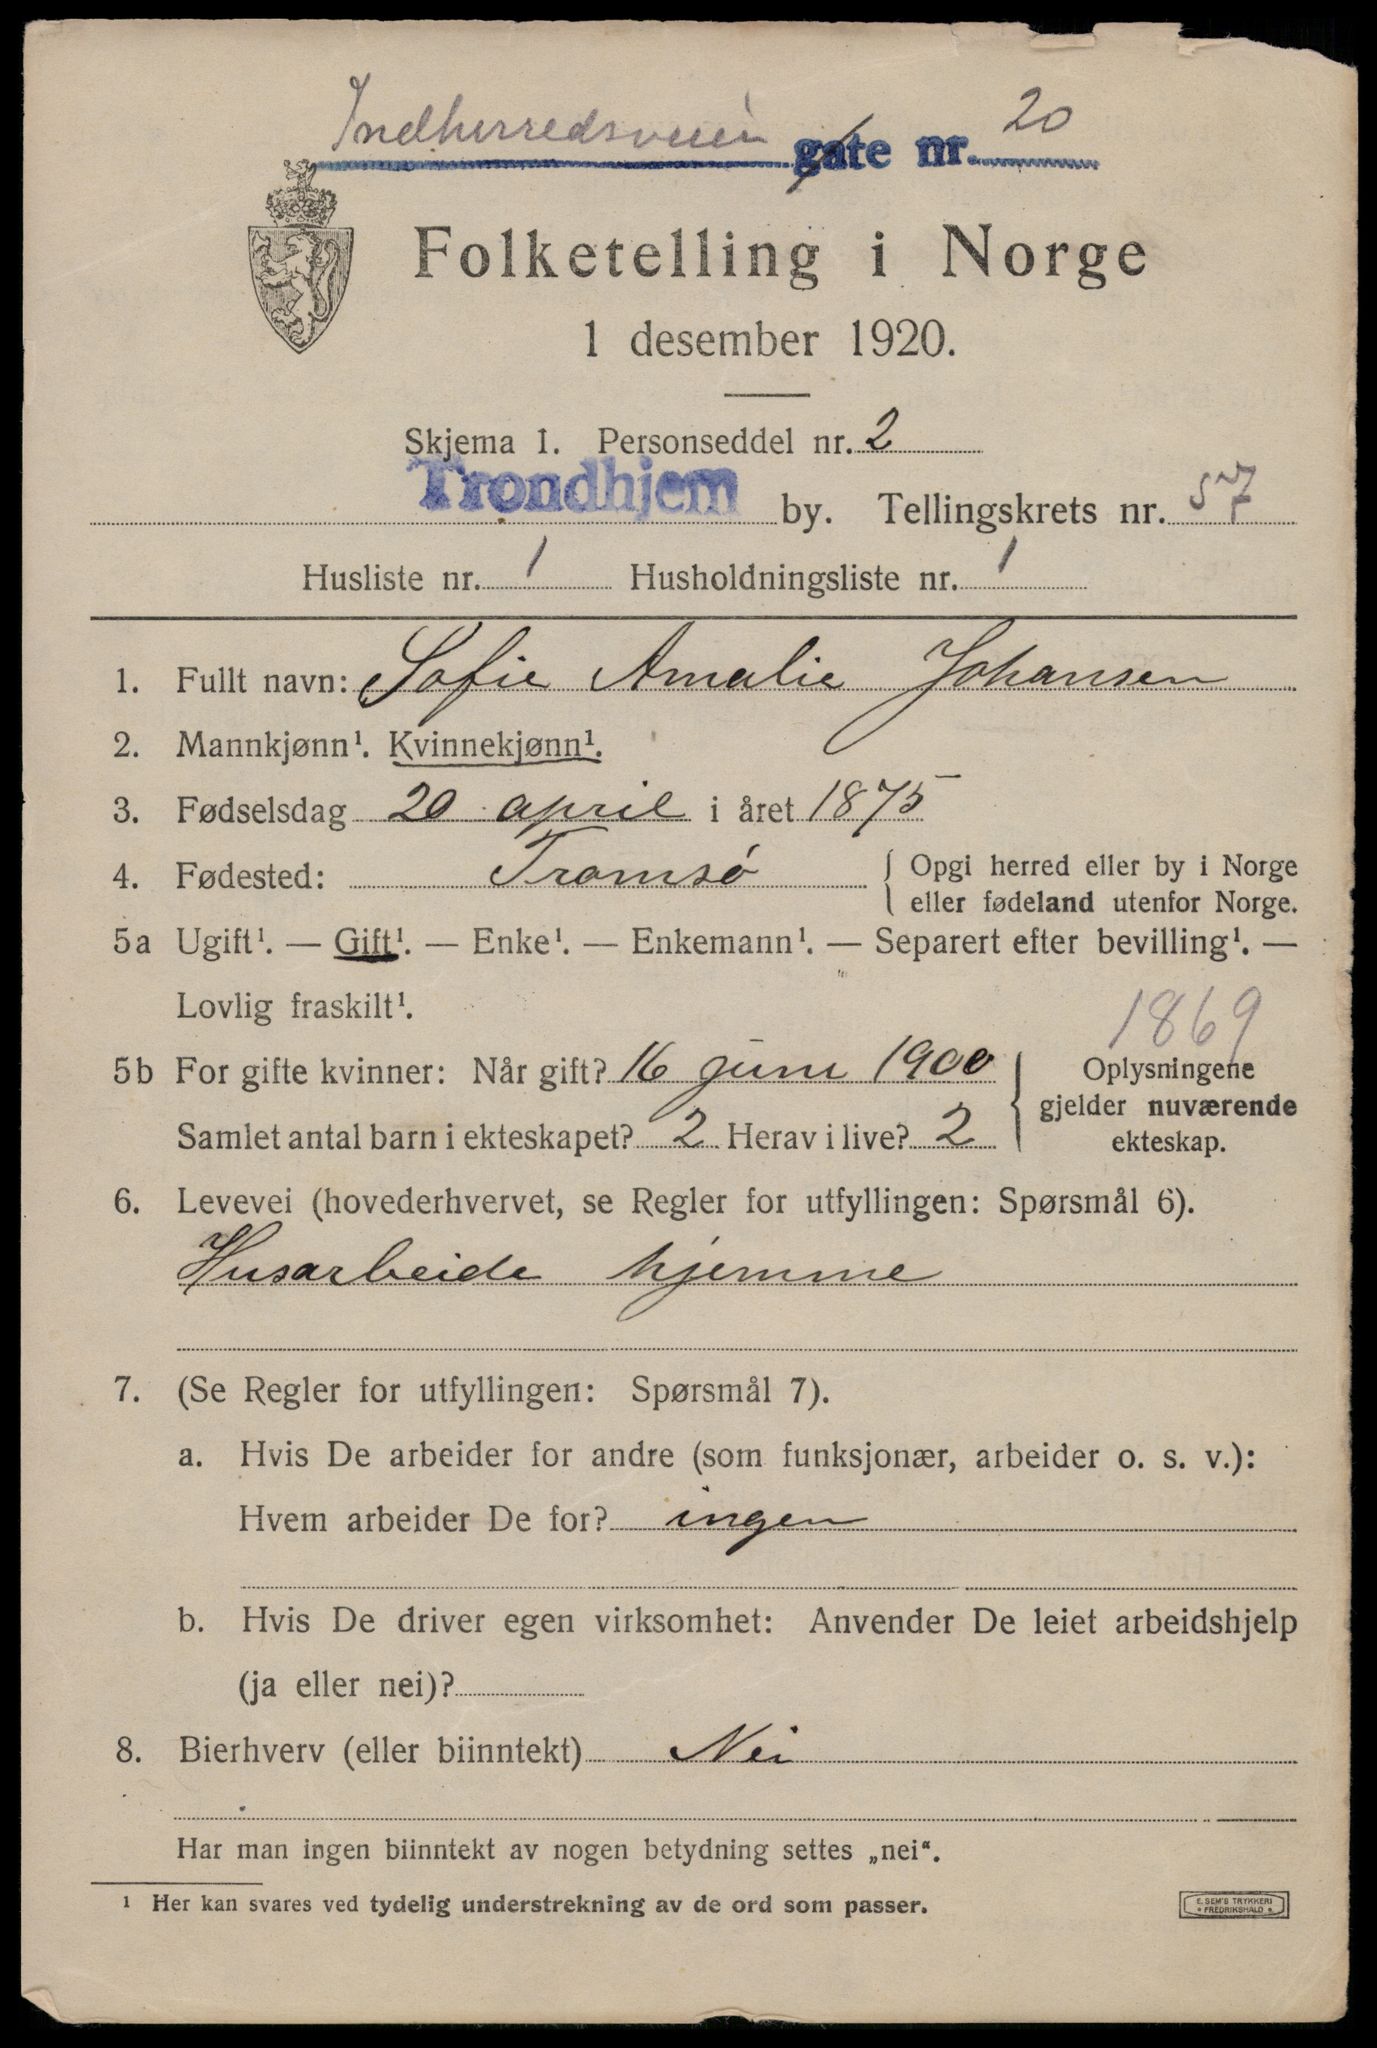 Indherredsveien gate nr. 20
Folketelling i Norge
1 desember 1920.
Skjema 1. Personseddel nr. 2
Trondhjem by. Tellingskrets nr. 57
Husliste nr. 1 Husholdningsliste nr. 1
1. Fullt navn: Sofie Amalie Johansen
2. Mannkjønn¹. Kvinnekjønn¹.
3. Fødselsdag 20 april i året 1875
4. Fødested: Tromsø { Opgi herred eller by i Norge
eller fødeland utenfor Norge.
5a Ugift¹. — Gift¹. — Enke¹. — Enkemann¹. — Separert efter bevilling¹. —
Lovlig fraskilt¹.
1869
5b For gifte kvinner: Når gift? 16 juni 1900 { Oplysningene
gjelder nuværende
Samlet antal barn i ekteskapet? 2 Herav i live? 2
ekteskap.
6. Levevei (hovederhvervet, se Regler for utfyllingen: Spørsmål 6).
Husarbeide hjemme
7. (Se Regler for utfyllingen: Spørsmål 7).
a. Hvis De arbeider for andre (som funksjonær, arbeider o. s. v.):
Hvem arbeider De for? ingen
b. Hvis De driver egen virksomhet: Anvender De leiet arbeidshjelp
(ja eller nei)?
8. Bierhverv (eller biinntekt) Nei
Har man ingen biinntekt av nogen betydning settes „nei“.
¹ Her kan svares ved tydelig understrekning av de ord som passer.
E. SEM'S TRYKKERI
* FREDRIKSHALD *